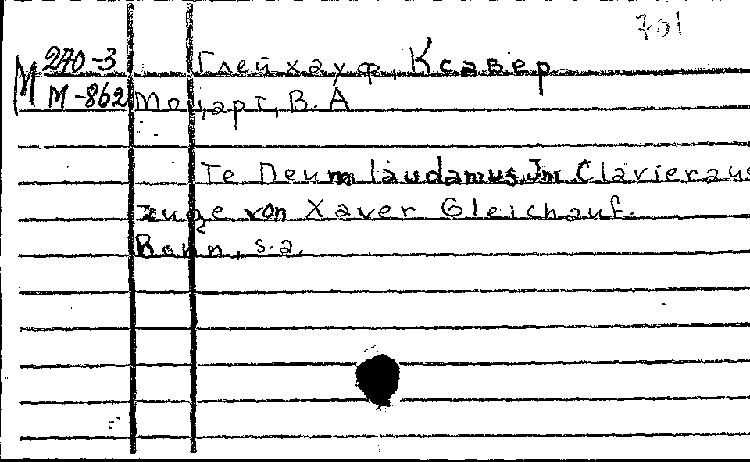 701
М 270-3 Глейхауф, Ксавер
М-862 Моцарт, В. А
Te Deum laudamus. Im Clavieraus
zuge von Xaver Gleichauf.
Bonn, s.a.